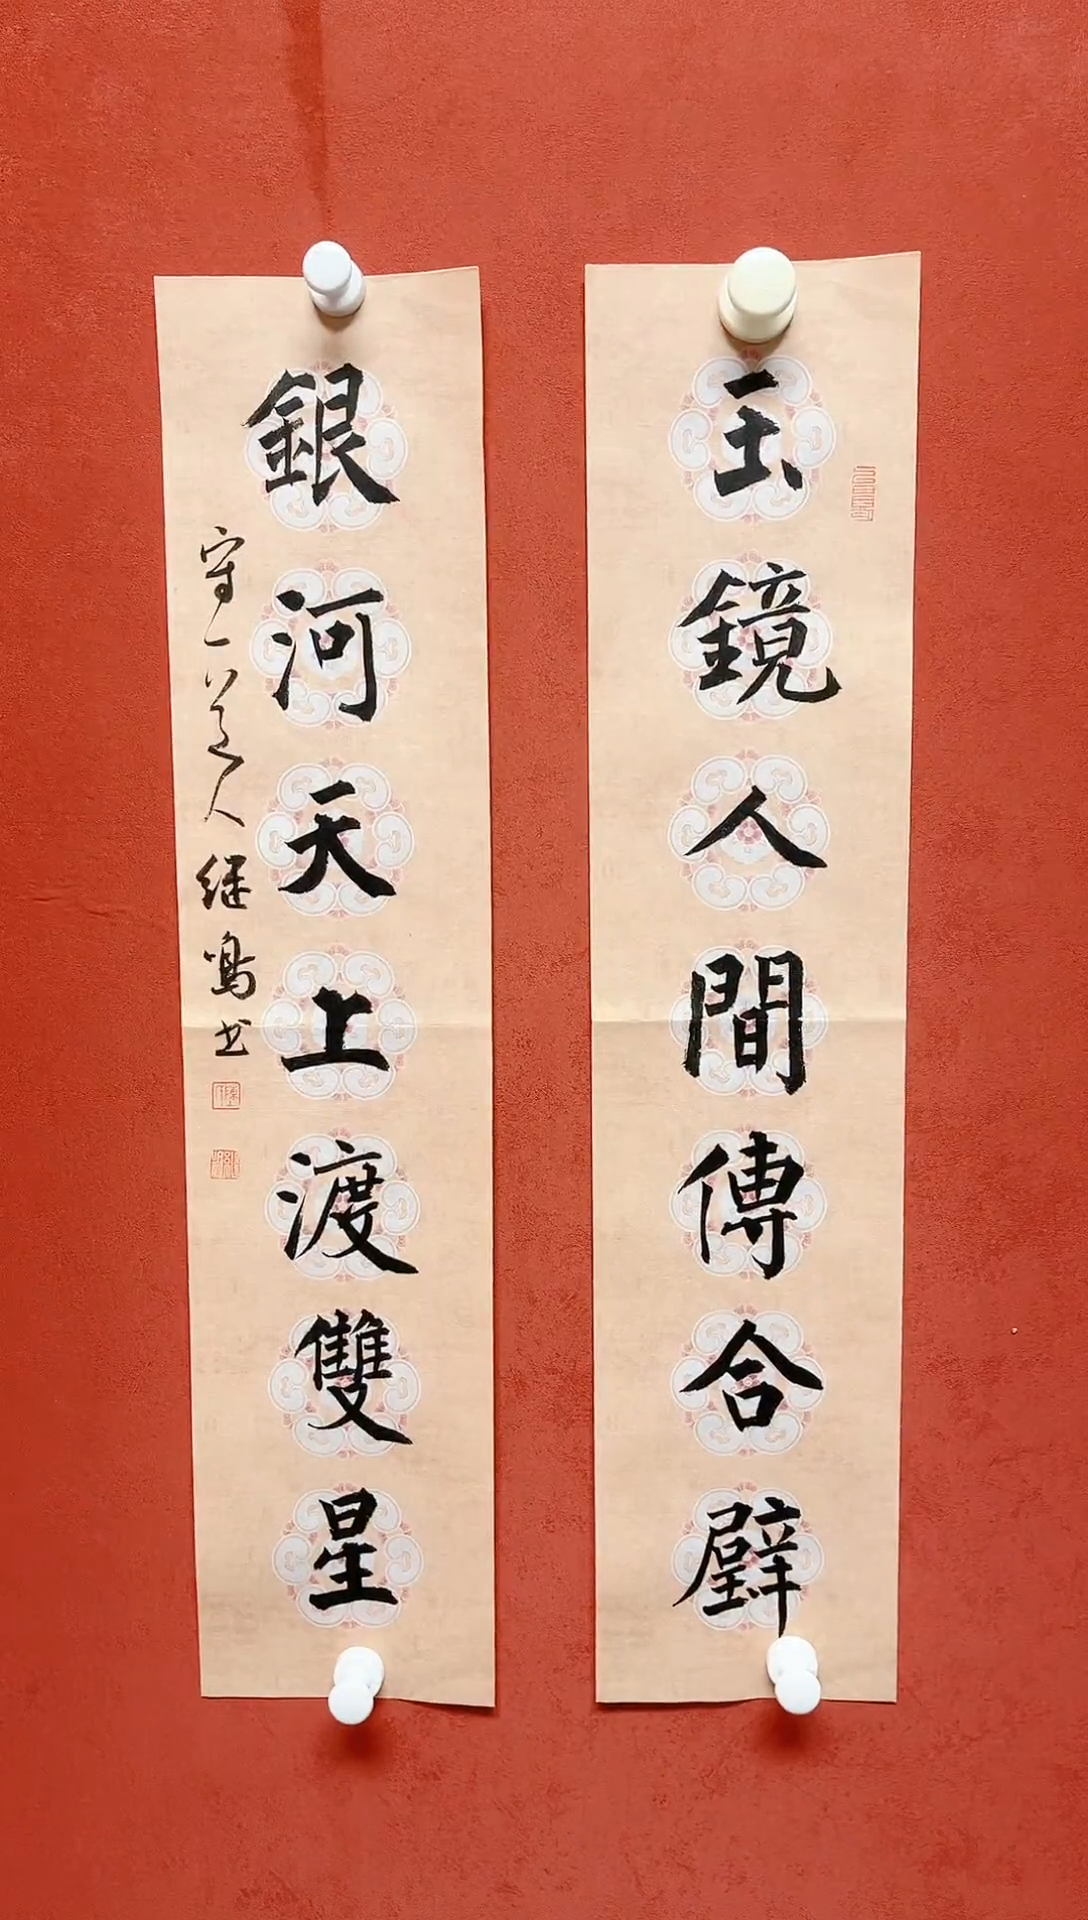 玉鏡人間傳合璧
銀河天上渡雙星
守一道人继鸣书